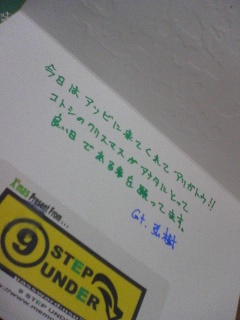 今日はアソビに来てくれてアリガトウ!!
コトシのクリスマスがアナタにとって
良い日である事を願ってます。
Gt. 弘樹
X'mas Present From...
9 STEP
UNDER